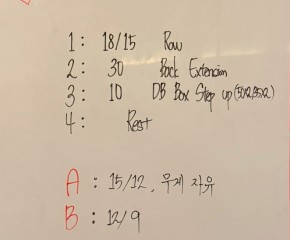 1: 18/15 Row
2: 30 Back Extension
3: 10 DB Box Step up (50x2, 35x2)
4: Rest
A: 15/12, 무게 자유
B: 12/9